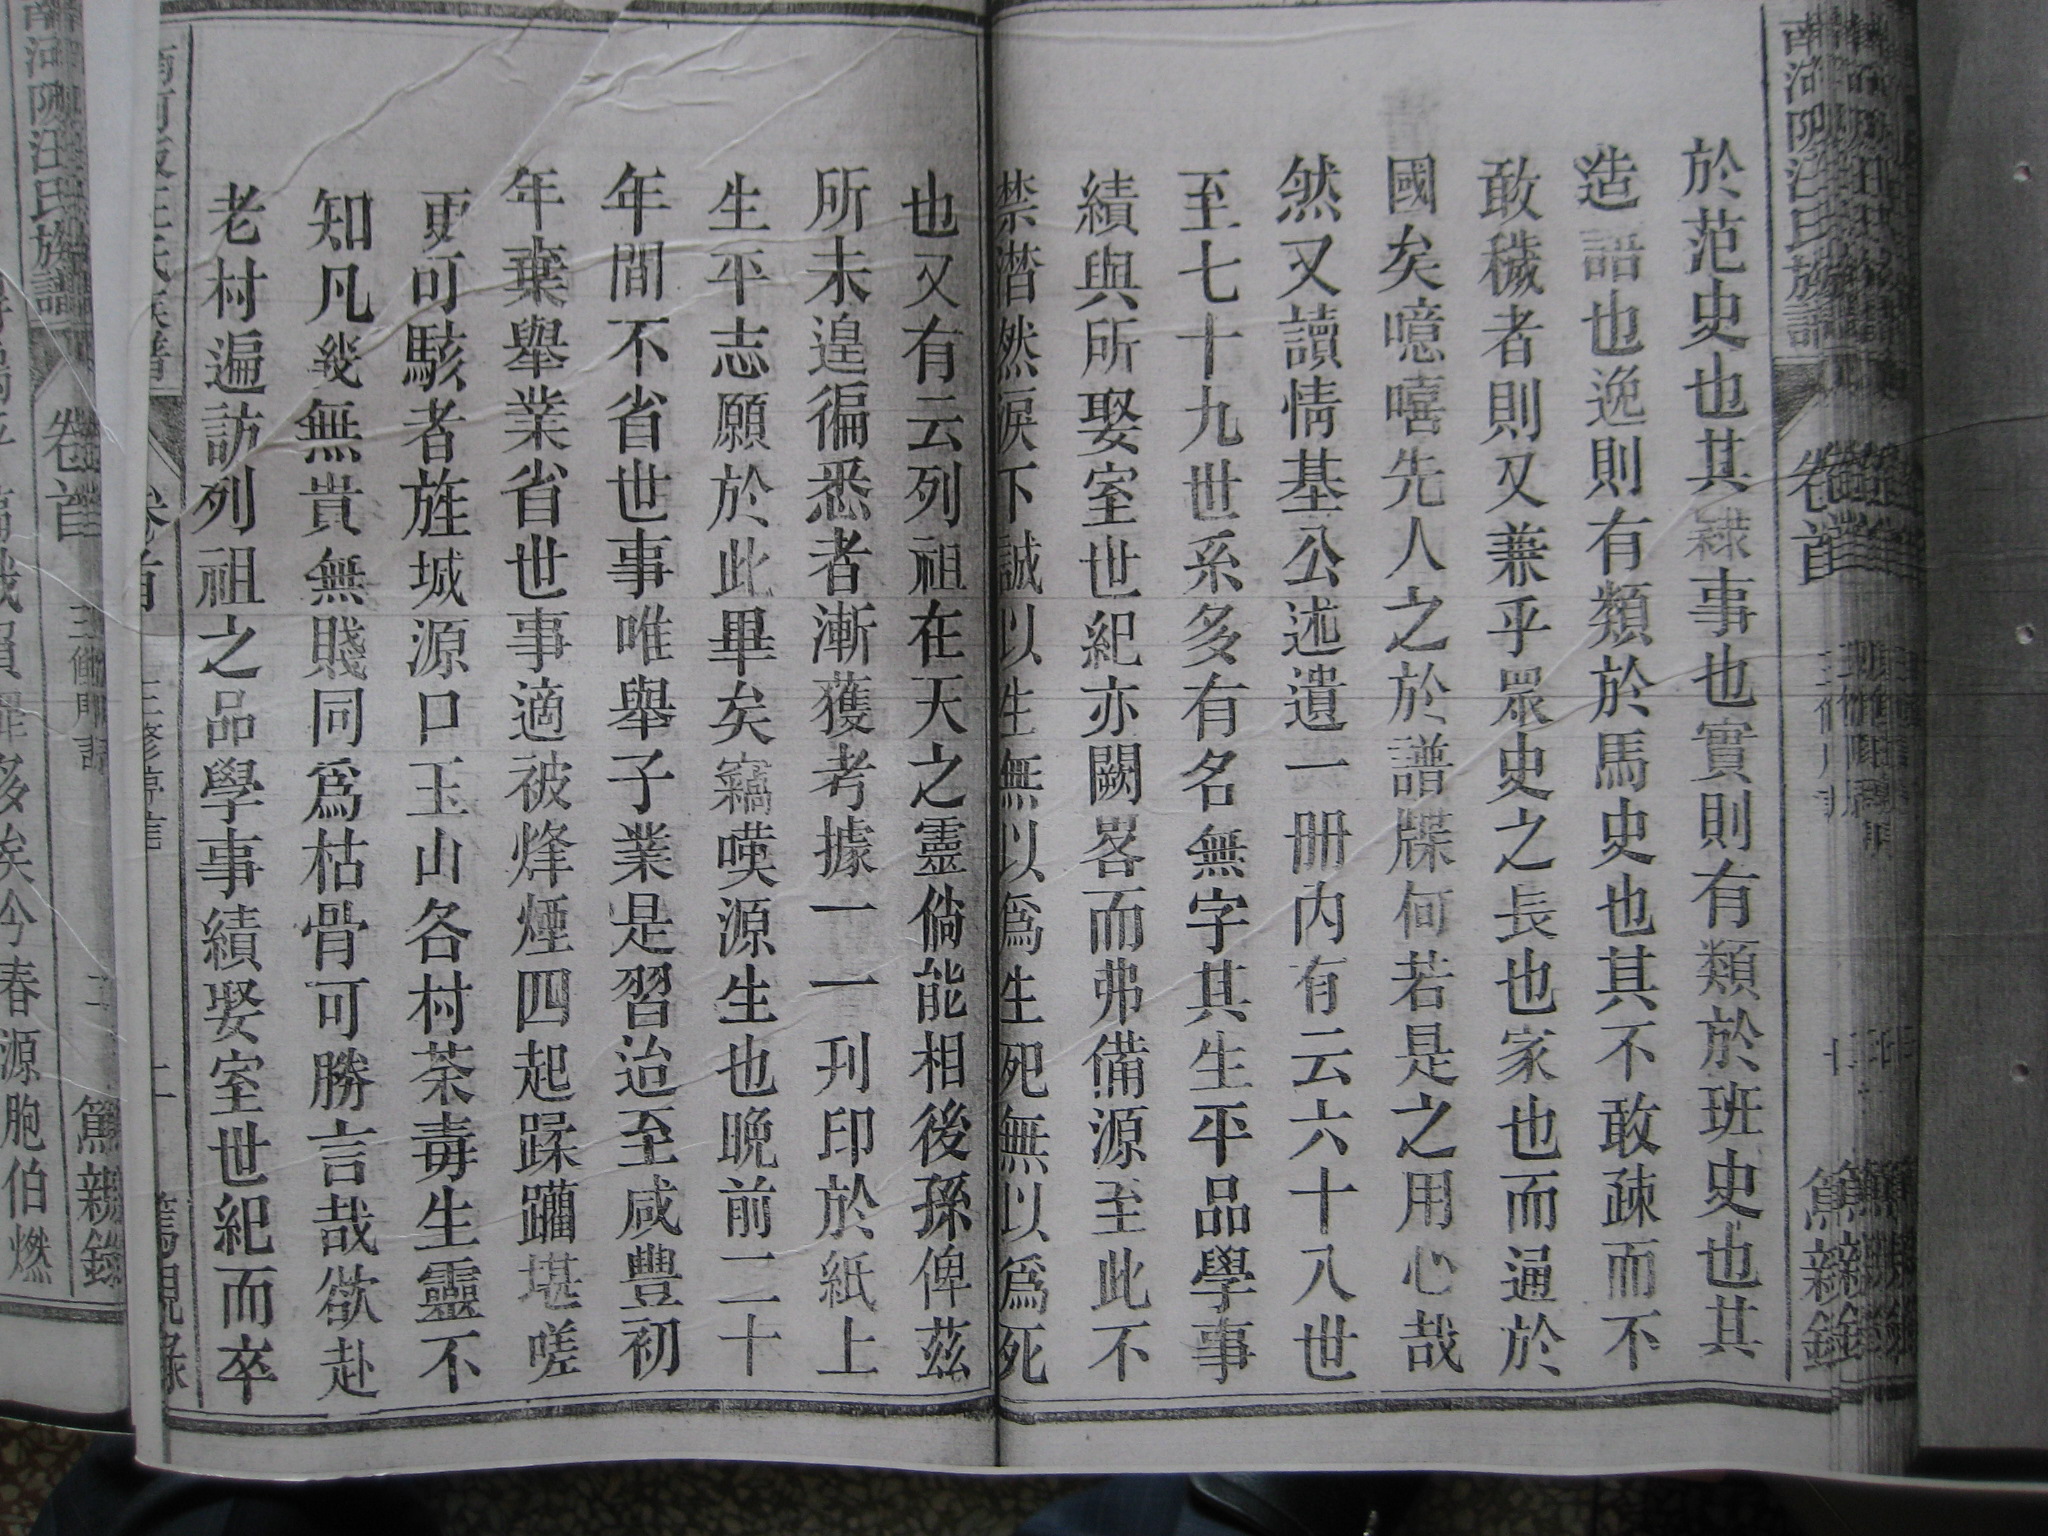 於范史也其隸事也實則有類於班史也其
造語也逸則有類於馬史也其不敢疎而不
敢穢者則又兼乎眾史之長也家也而通於
國矣噫嘻先人之於譜牒何若是之用心哉
然又讀情基公述遺一冊內有云六十八世
至七十九世系多有名無字其生平品學事
績與所娶室世紀亦闕畧而弗備源至此不
禁潸然淚下誠以生無以爲生死無以爲死
也又有云列祖在天之靈倘能相後孫俾茲
所未遑徧悉者漸獲考據一一刋印於紙上
生平志願於此畢矣竊嘆源生也晚前二十
年間不省世事唯舉子業是習迨至咸豐初
年棄舉業省世事適被烽煙四起蹂躪堪嗟
更可駭者旌城源口玉山各村荼毒生靈不
知凡幾無貴無賤同爲枯骨可勝言哉欲赴
老村遍訪列祖之品學事績娶室世紀而卒
卷首
南 汪氏族譜
卷首
今春源胞伯燃